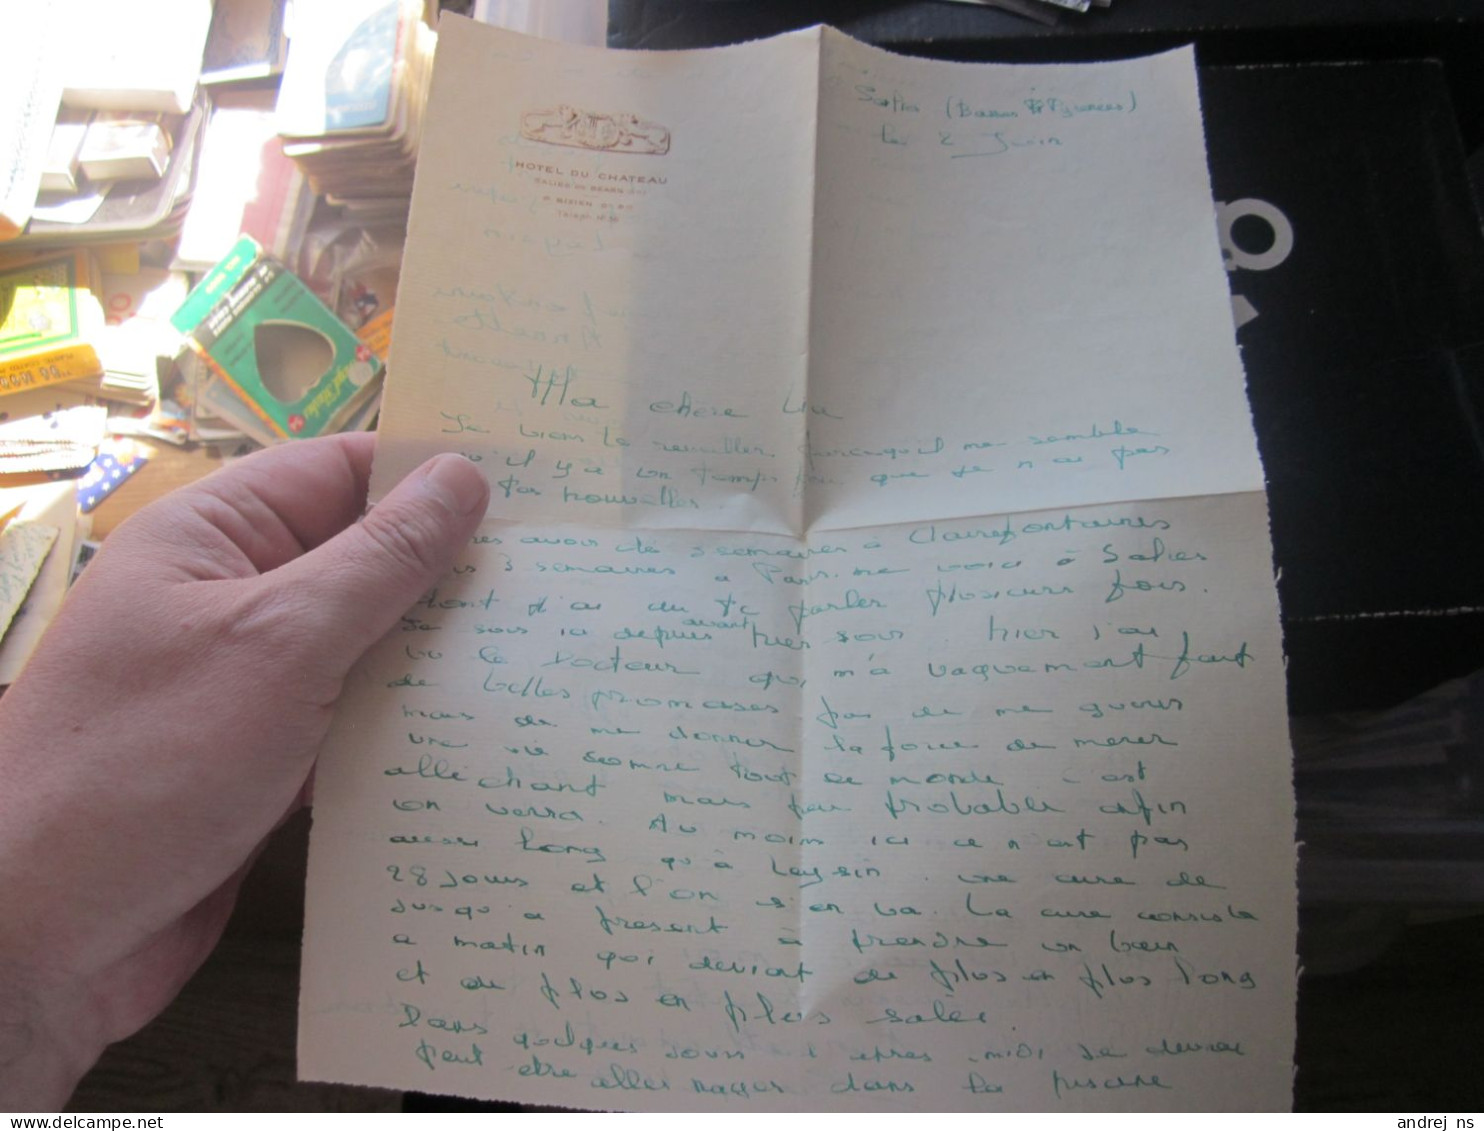 HOTEL DU CHATEAU
SALIES DE BEARN
(Basses Pyrenees)
le 2 Juin
Ma chere
Je viens te parcequ'il me semble
qu'il y a un temps fou que je n'ai pas
tes nouvelles.
avoir été 3 semaines à Clairefontaines
3 semaines a Paris. me voici à Salies
dont j'ai du te parler plusieurs fois.
Je suis ici depuis avant hier soir. hier j'ai
vu le Docteur qui m'a vaguement fait
de belles promesses pas de me guerir
mais de me donner la force de mener
une vie comme tout le monde. c'est
alléchant mais peu probable enfin
on verra. Au moins ici ce n'est pas
aussi long qu'à Leysin. une cure de
28 jours et l'on s'en va. La cure consiste
jusqu'a present à prendre un bain
le matin qui devient de plus en plus long
et de plus en plus salé.
Dans quelques jours l'apres midi je devrai
peut etre aller nager dans la piscine
andrej ns